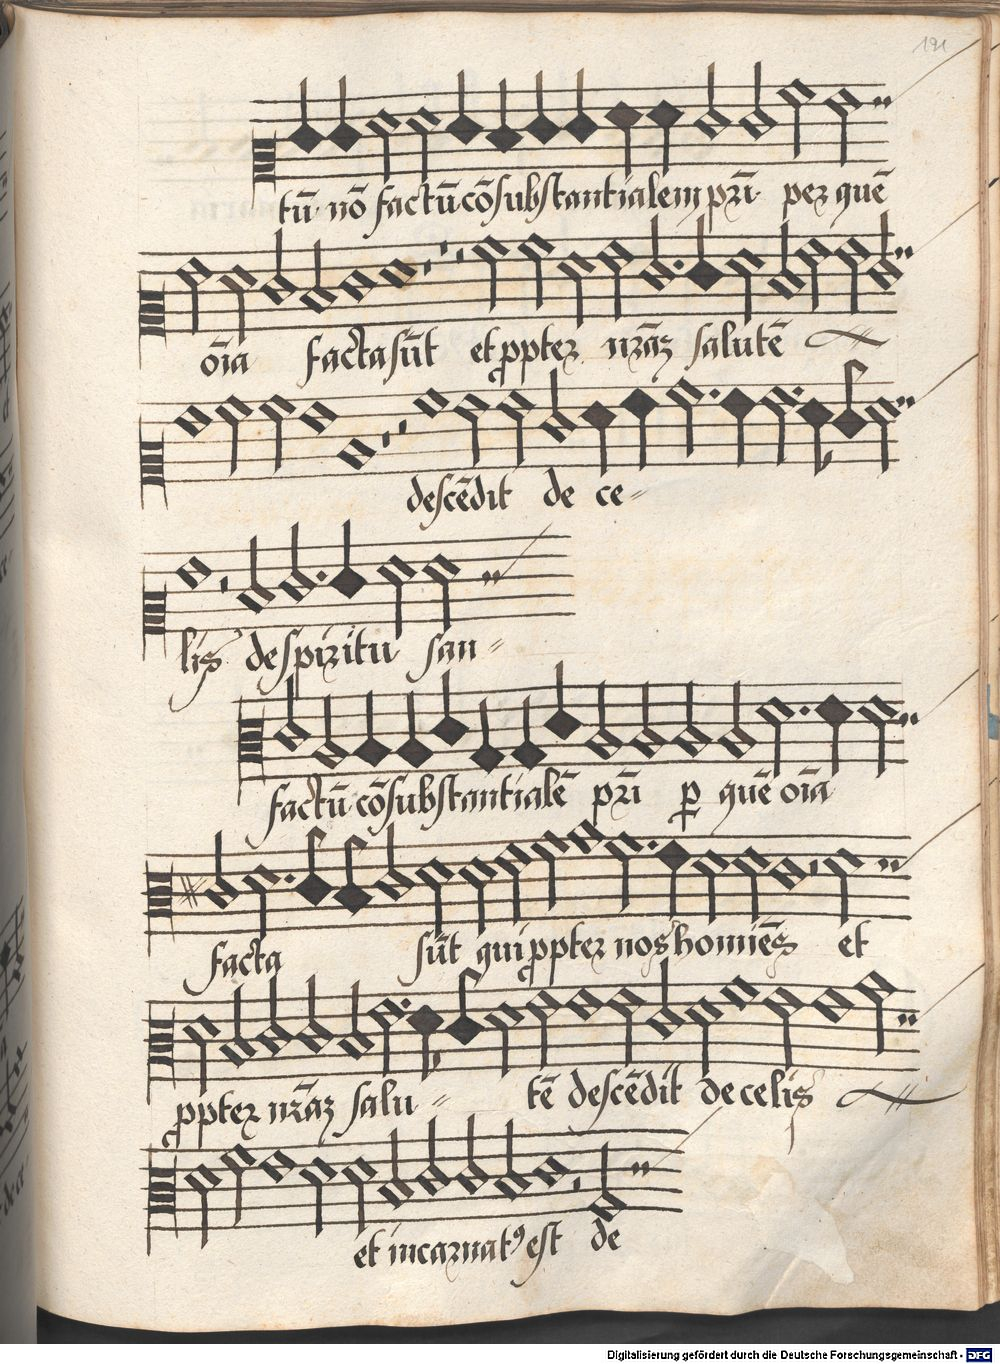 191
tū nō factū cōsubstantialem pr̄i per quē
oīa facta sūt et ꝓpter nr̄aꝫ salutē
descēdit de ce〃
lis de spiritu san〃
factū cōsubstantialē pr̄i ꝑ quē oīa
facta sūt qui ꝓpter nos homīes et
ꝓpter nr̄aꝫ salu〃 tē descēdit de celis
et incarnatꝰ est de
Digitalisierung gefördert durch die Deutsche Forschungsgemeinschaft - DFG